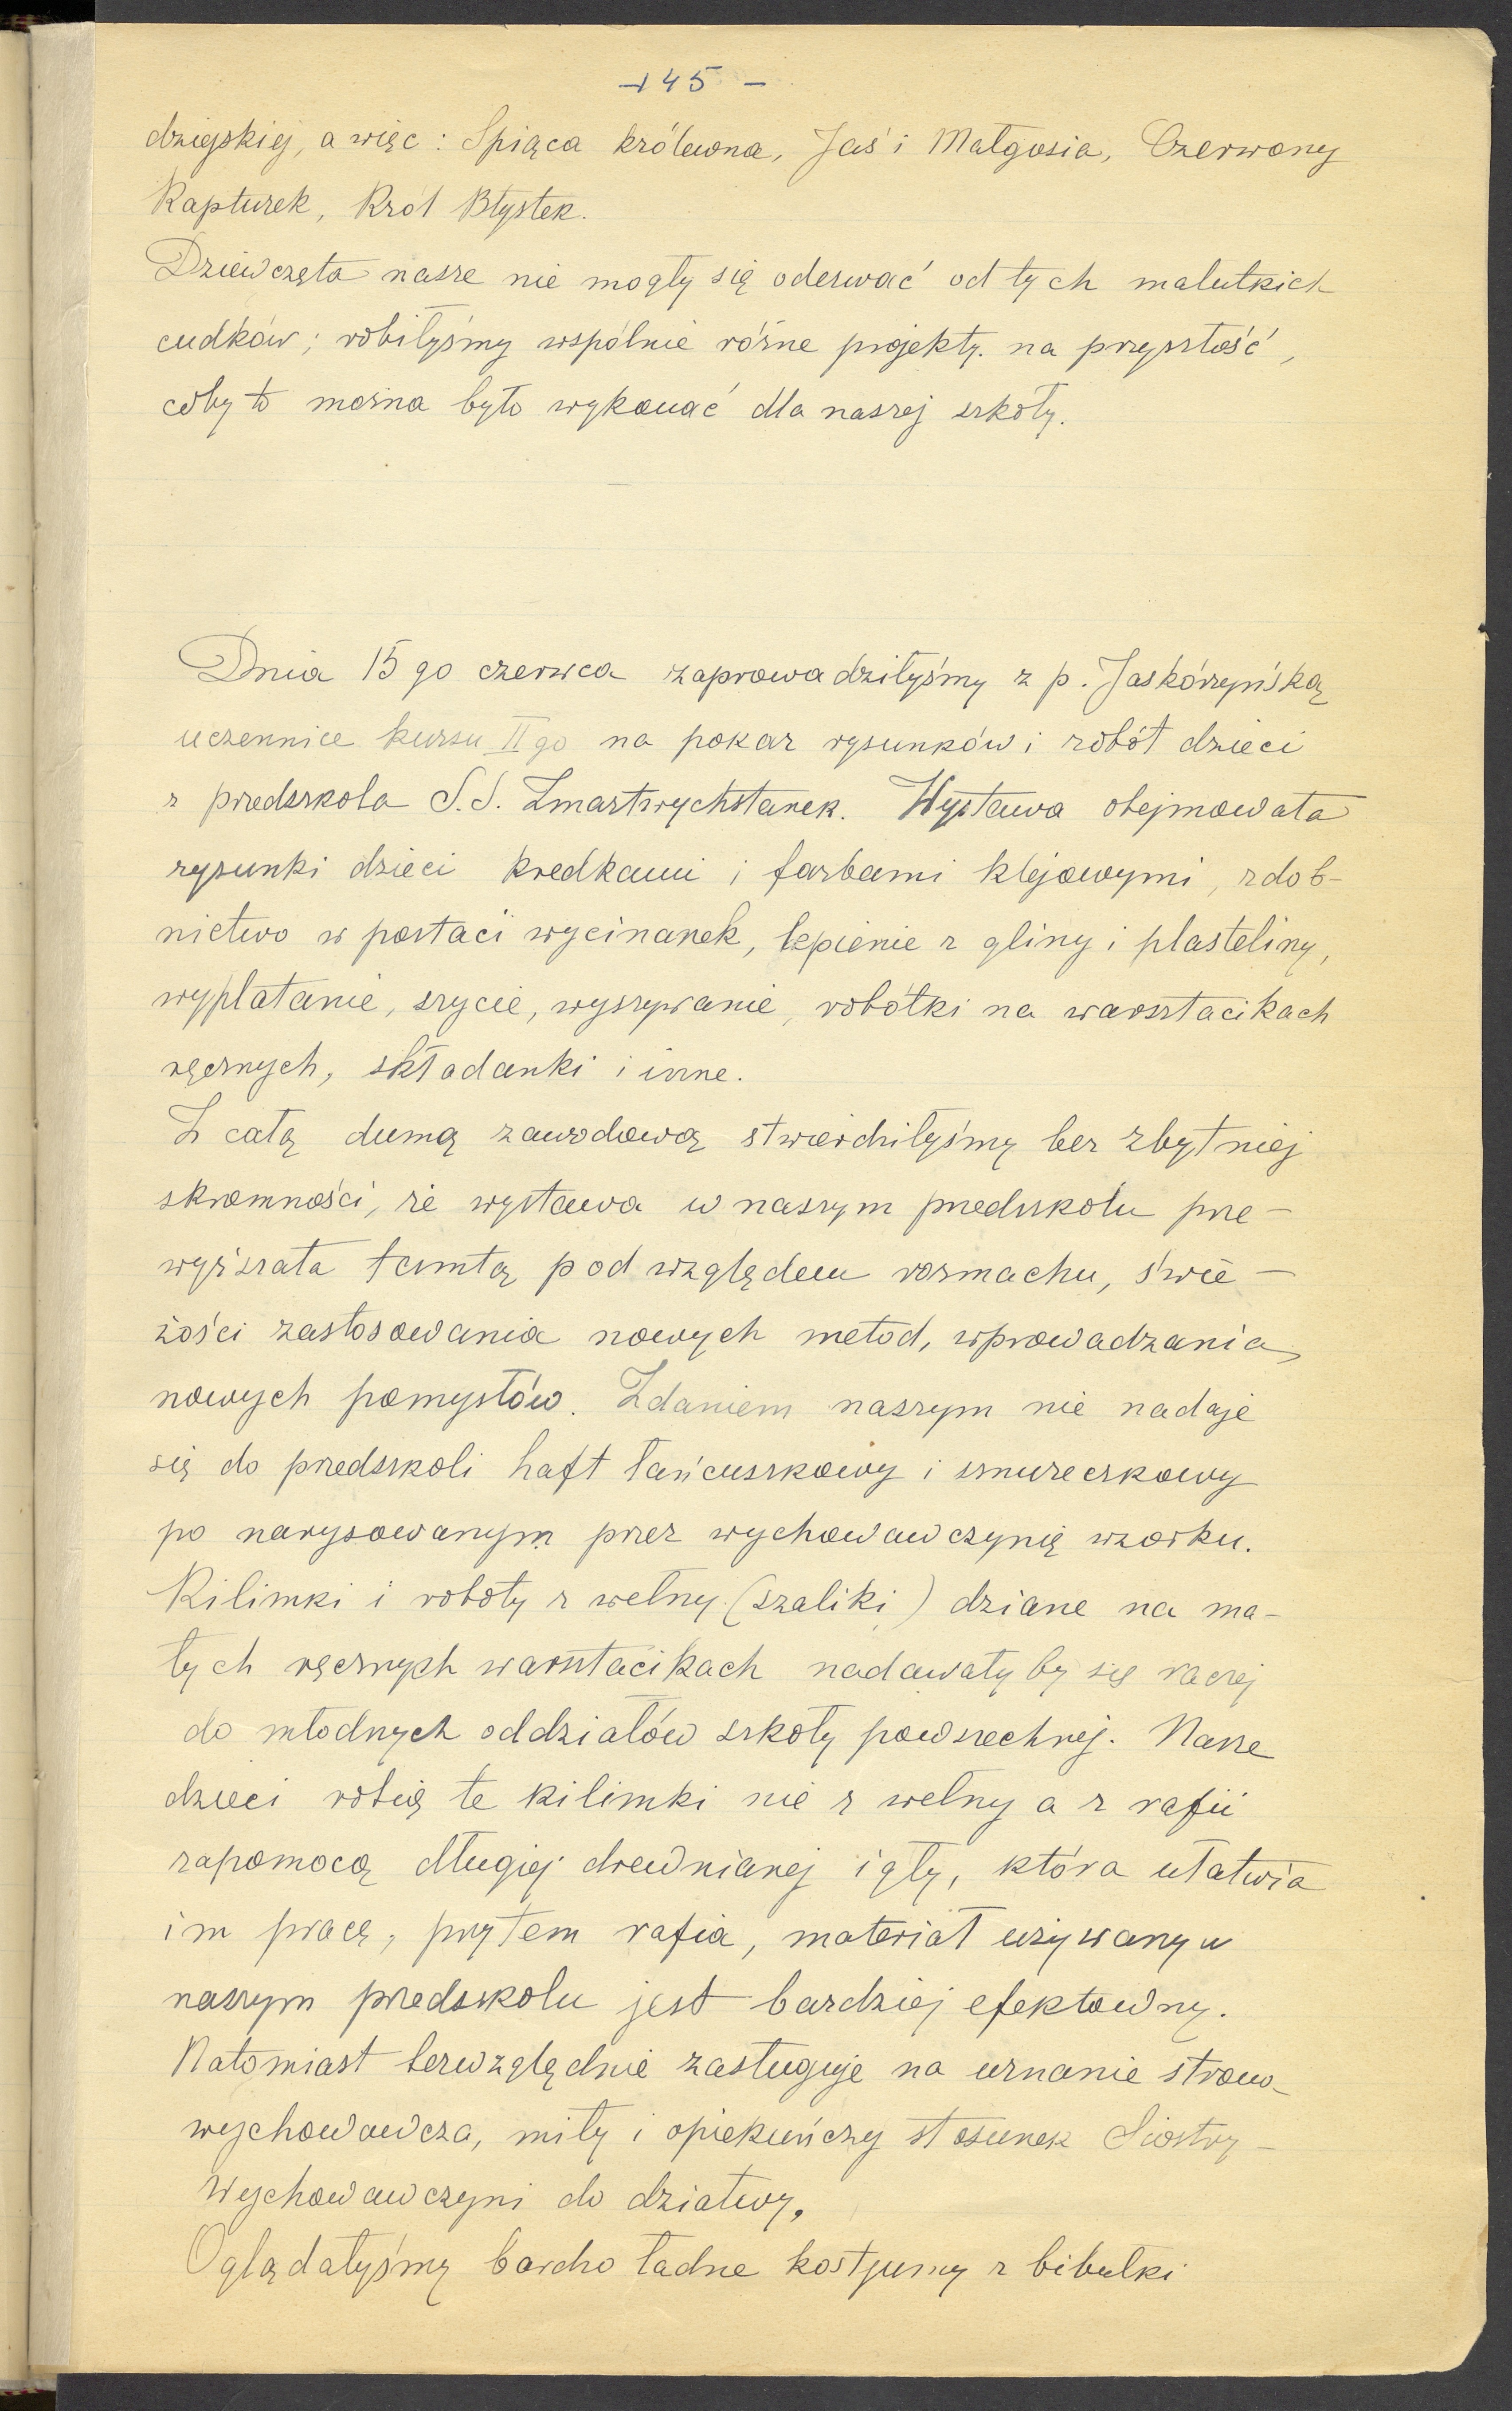 - 145 -
dziejskiej, a więc: Śpiąca królewna, Jaś i Małgosia, Czerwony
Kapturek, Król Błystek.
Dziewczęta nasze nie mogły się oderwać od tych malutkich
cudków; robiłyśmy wspólnie różne projekty. na przyszłość,
coby to można było wykonać dla naszej szkoły.
Dnia 15 go czerwca zaprowadziłyśmy z p. Jaskórzyńską
uczennice kursu II go na pokaz rysunków i robót dzieci
z przedszkola S.S. Zmartwychstanek. Wystawa obejmowała
rysunki dzieci kredkami i farbami klejowymi, zdob-
nictwo w postaci wycinanek, lepienie z gliny i plasteliny,
wyplatanie, szycie, wyszywanie, robótki na warsztacikach
ręcznych, składanki i inne.
Z całą dumą zawodową stwierdziłyśmy bez zbytniej
skromności, że wystawa w naszym przedszkolu prze-
wyższała tamtą pod względem rozmachu, świe-
żości zastosowania nowych metod, wprowadzania
nowych pomysłów. Zdaniem naszym nie nadaje
się do przedszkoli haft łańcuszkowy i sznureczkowy
po narysowanym przez wychowawczynię wzorku.
Kilimki i roboty z wełny (szaliki) dziane na ma-
łych ręcznych warsztacikach nadawały by się raczej
do młodszych oddziałów szkoły powszechnej. Nasze
dzieci robią te kilimki nie z wełny a z rafii
zapomocą długiej drewnianej igły, która ułatwia
im pracę, przytem rafia, materiał używany w
naszym przedszkolu jest bardziej efektowny.
Natomiast bezwzględnie zasługuje na uznanie strona
wychowawcza, miły i opiekuńczy stosunek Siostry-
Wychowawczyni do dziatwy.
Oglądałyśmy bardzo ładne kostjumy z bibułki